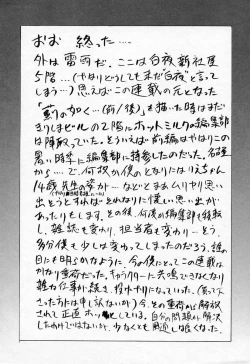 おお 終った……
外は雷雨だ。ここは白夜新社屋
5階…(やはりどうしても未だ"白夜"と言って
しまう…)思えばこの連載の元となった
「薊の如く…(前/後)」を描いた時はまだ
きりしまビルの2階にホットミルクの編集部
は陣取っていた。そういえば前編はやはりこの
暑い時季に編集部に持参したのだった。名古屋
から…で、何故か僕のとなりには
14歳 先生の姿が…などとまあムリヤリ思い
出そうとすればそれなりに懐しい思い出が
あったりもします。その後、何度か編集部も移転
し、雑誌も変わり、担当者も変わり…そう、
多分僕も少しは変わってしまったのだろう、誰の
目にも明らかなように、今の僕にとってこの連載は
かなり重荷だった。キャラクターに共鳴できなくなり
雑な仕事が続き、投ゲヤリになっていた(買って下
さった方には申し訳ないが)今、その重荷から解放
されて正直ホッとしている。自分の問題が解決
したわけではないが、少なくとも 過し易くなった。